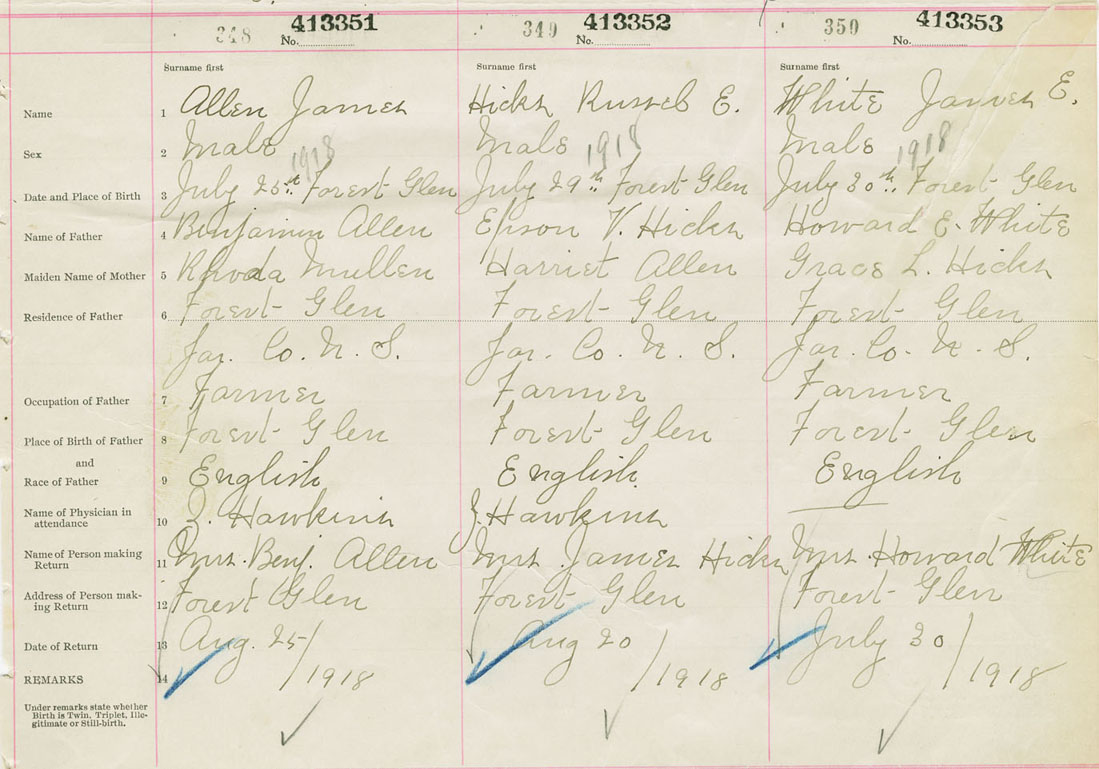 348 413351 349 413352 350 413353
No. No. No.
Surname first Surname first Surname first
Name 1 Allen James Hicks Russel E. White James E.
Sex 2 Male Male Male
1918 1918 1918
Date and Place of Birth 3 July 25st Forest Glen July 29th Forest Glen July 30th Forest Glen
Name of Father 4 Benjamin Allen Epson V. Hicks Howard E. White
Maiden Name of Mother 5 Rhoda Mullen Harriet Allen Grace L. Hicks
Residence of Father 6 Forest Glen Forest Glen Forest Glen
Yar. Co. N. S. Yar. Co. N. S. Yar. Co. N. S.
Occupation of Father 7 Farmer Farmer Farmer
Place of Birth of Father 8 Forest Glen Forest Glen Forest Glen
and
Race of Father 9 English English English
Name of Physician in
attendance 10 Z. Hawkins Z. Hawkins
Name of Person making
Return 11 Mrs. Benj. Allen Mrs. James Hicks Mrs. Howard White
Address of Person mak-
ing Return 12 Forest Glen Forest Glen Forest Glen
Date of Return 13 Aug. 25/ Aug 20 July 30
REMARKS 14 /1918 /1918 /1918
Under remarks state whether
Birth is Twin, Triplet, Ille-
gitimate or Still-birth.